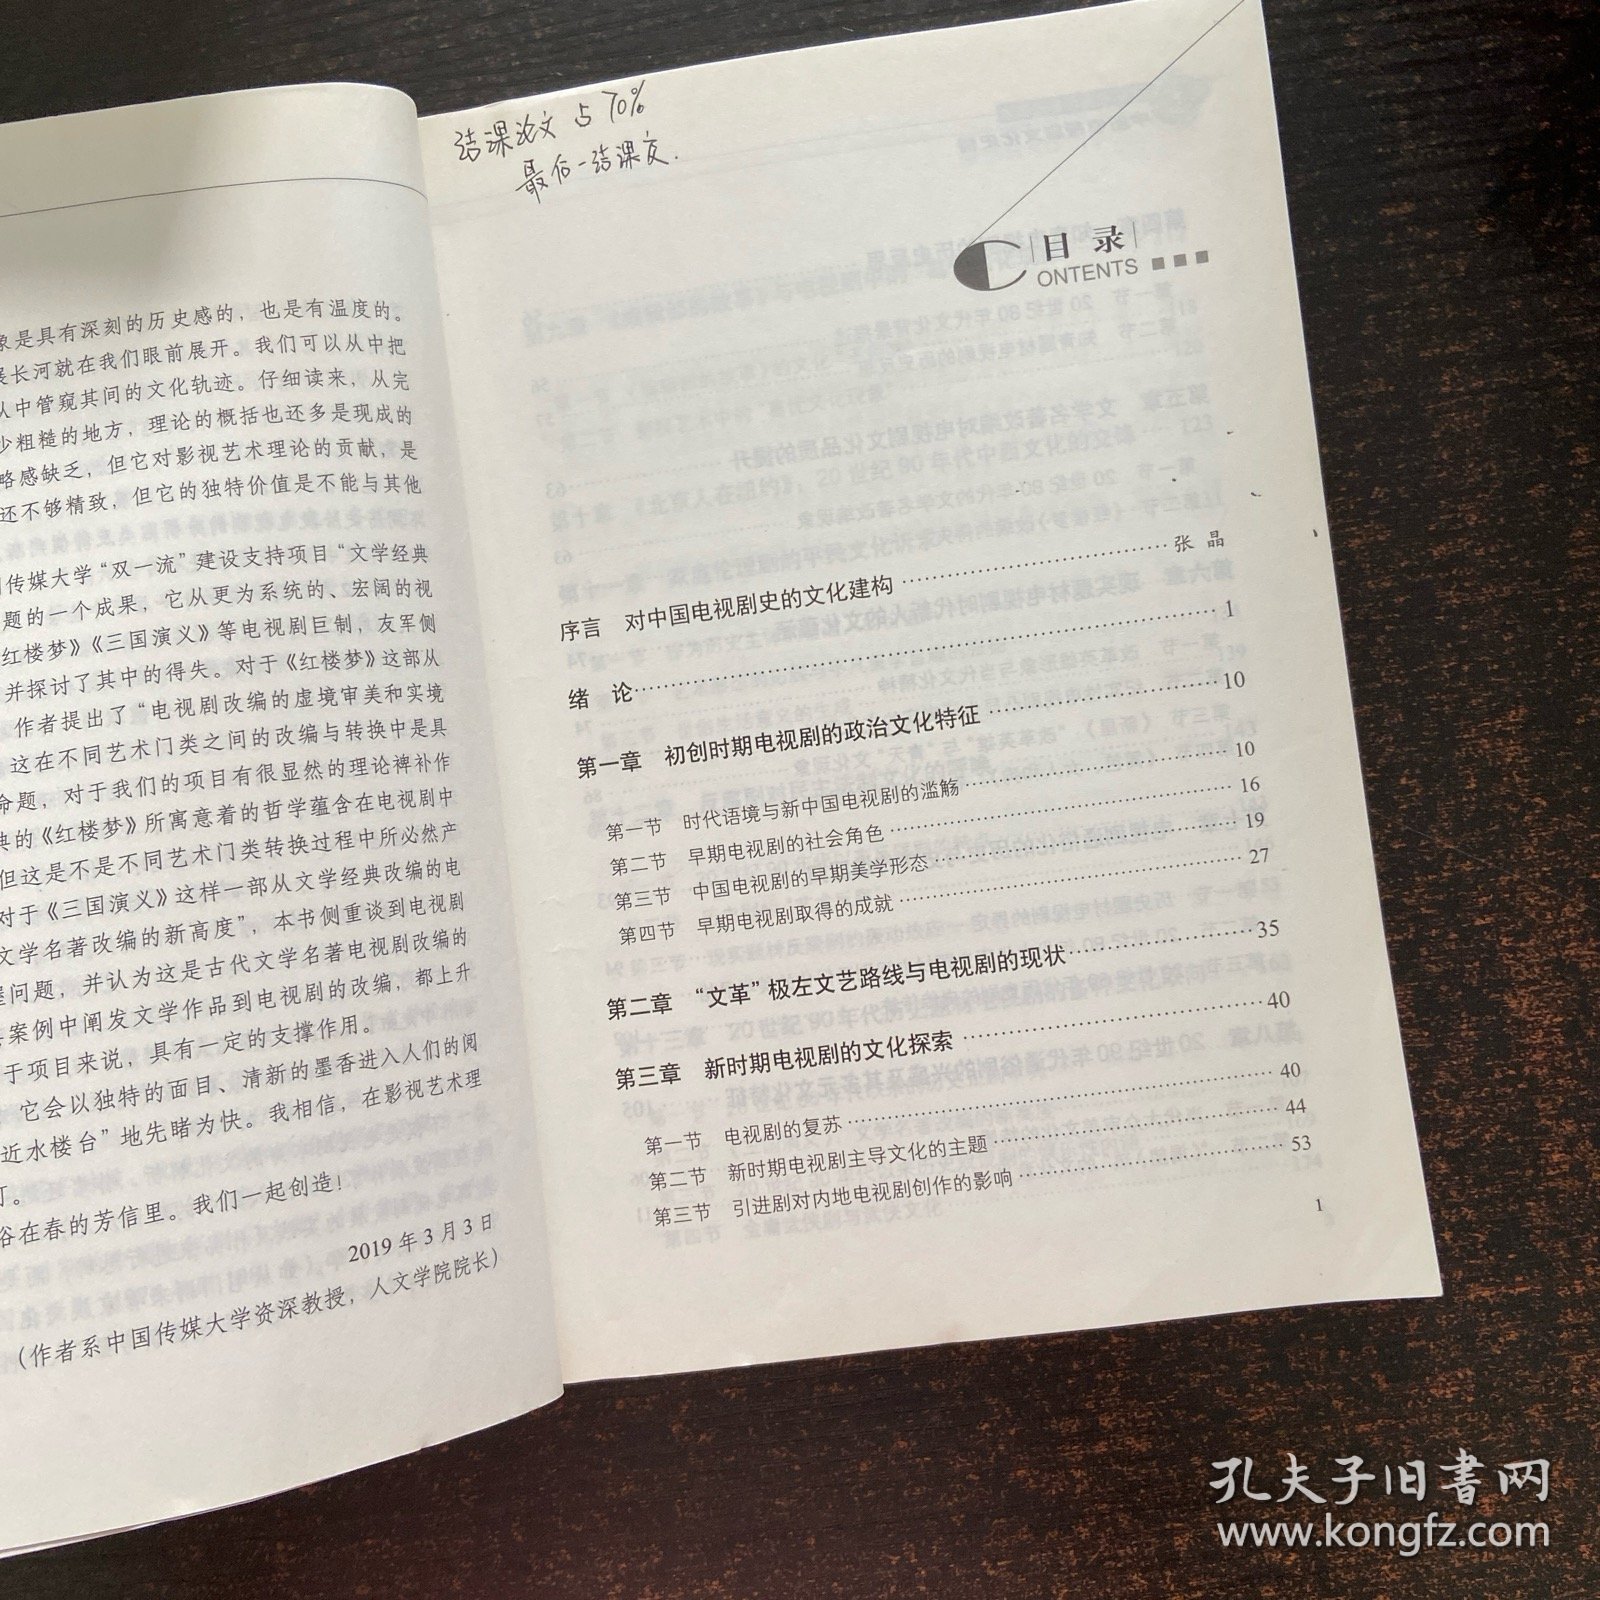 象是具有深刻的历史感的，也是有温度的。
展长河就在我们眼前展开。我们可以从中把
从中管窥其间的文化轨迹。仔细读来，从完
少粗糙的地方，理论的概括也还多是现成的
略感缺乏，但它对影视艺术理论的贡献，是
还不够精致，但它的独特价值是不能与其他
国传媒大学“双一流”建设支持项目“文学经典
题的一个成果，它从更为系统的、宏阔的视
红楼梦》《三国演义》等电视剧巨制，友军侧
并探讨了其中的得失。对于《红楼梦》这部从
作者提出了“电视剧改编的虚境审美和实境
这在不同艺术门类之间的改编与转换中是具
命题，对于我们的项目有很显然的理论裨补作
典的《红楼梦》所寓意着的哲学蕴含在电视剧中
但这是不是不同艺术门类转换过程中所必然产
对于《三国演义》这样一部从文学经典改编的电
文学名著改编的新高度”，本书侧重谈到电视剧
问题，并认为这是古代文学名著电视剧改编的
案例中阐发文学作品到电视剧的改编，都上升
于项目来说，具有一定的支撑作用。
它会以独特的面目、清新的墨香进入人们的阅
近水楼台”地先睹为快。我相信，在影视艺术理
在春的芳信里。我们一起创造！
2019年3月3日
（作者系中国传媒大学资深教授，人文学院院长）
结课论文 占70%
最后一结课交.
目 录
CONTENTS
序言 对中国电视剧史的文化建构 ………………………… 张 晶
绪 论………………………… 1
第一章 初创时期电视剧的政治文化特征 ………………………… 10
第一节 时代语境与新中国电视剧的滥觞 ………………………… 10
第二节 早期电视剧的社会角色 ………………………… 16
第三节 中国电视剧的早期美学形态 ………………………… 19
第四节 早期电视剧取得的成就 ………………………… 27
第二章 “文革”极左文艺路线与电视剧的现状 ………………………… 35
第三章 新时期电视剧的文化探索 ………………………… 40
第一节 电视剧的复苏 ………………………… 40
第二节 新时期电视剧主导文化的主题 ………………………… 44
第三节 引进剧对内地电视剧创作的影响 ………………………… 53
1
孔夫子旧书网
www.kongfz.com